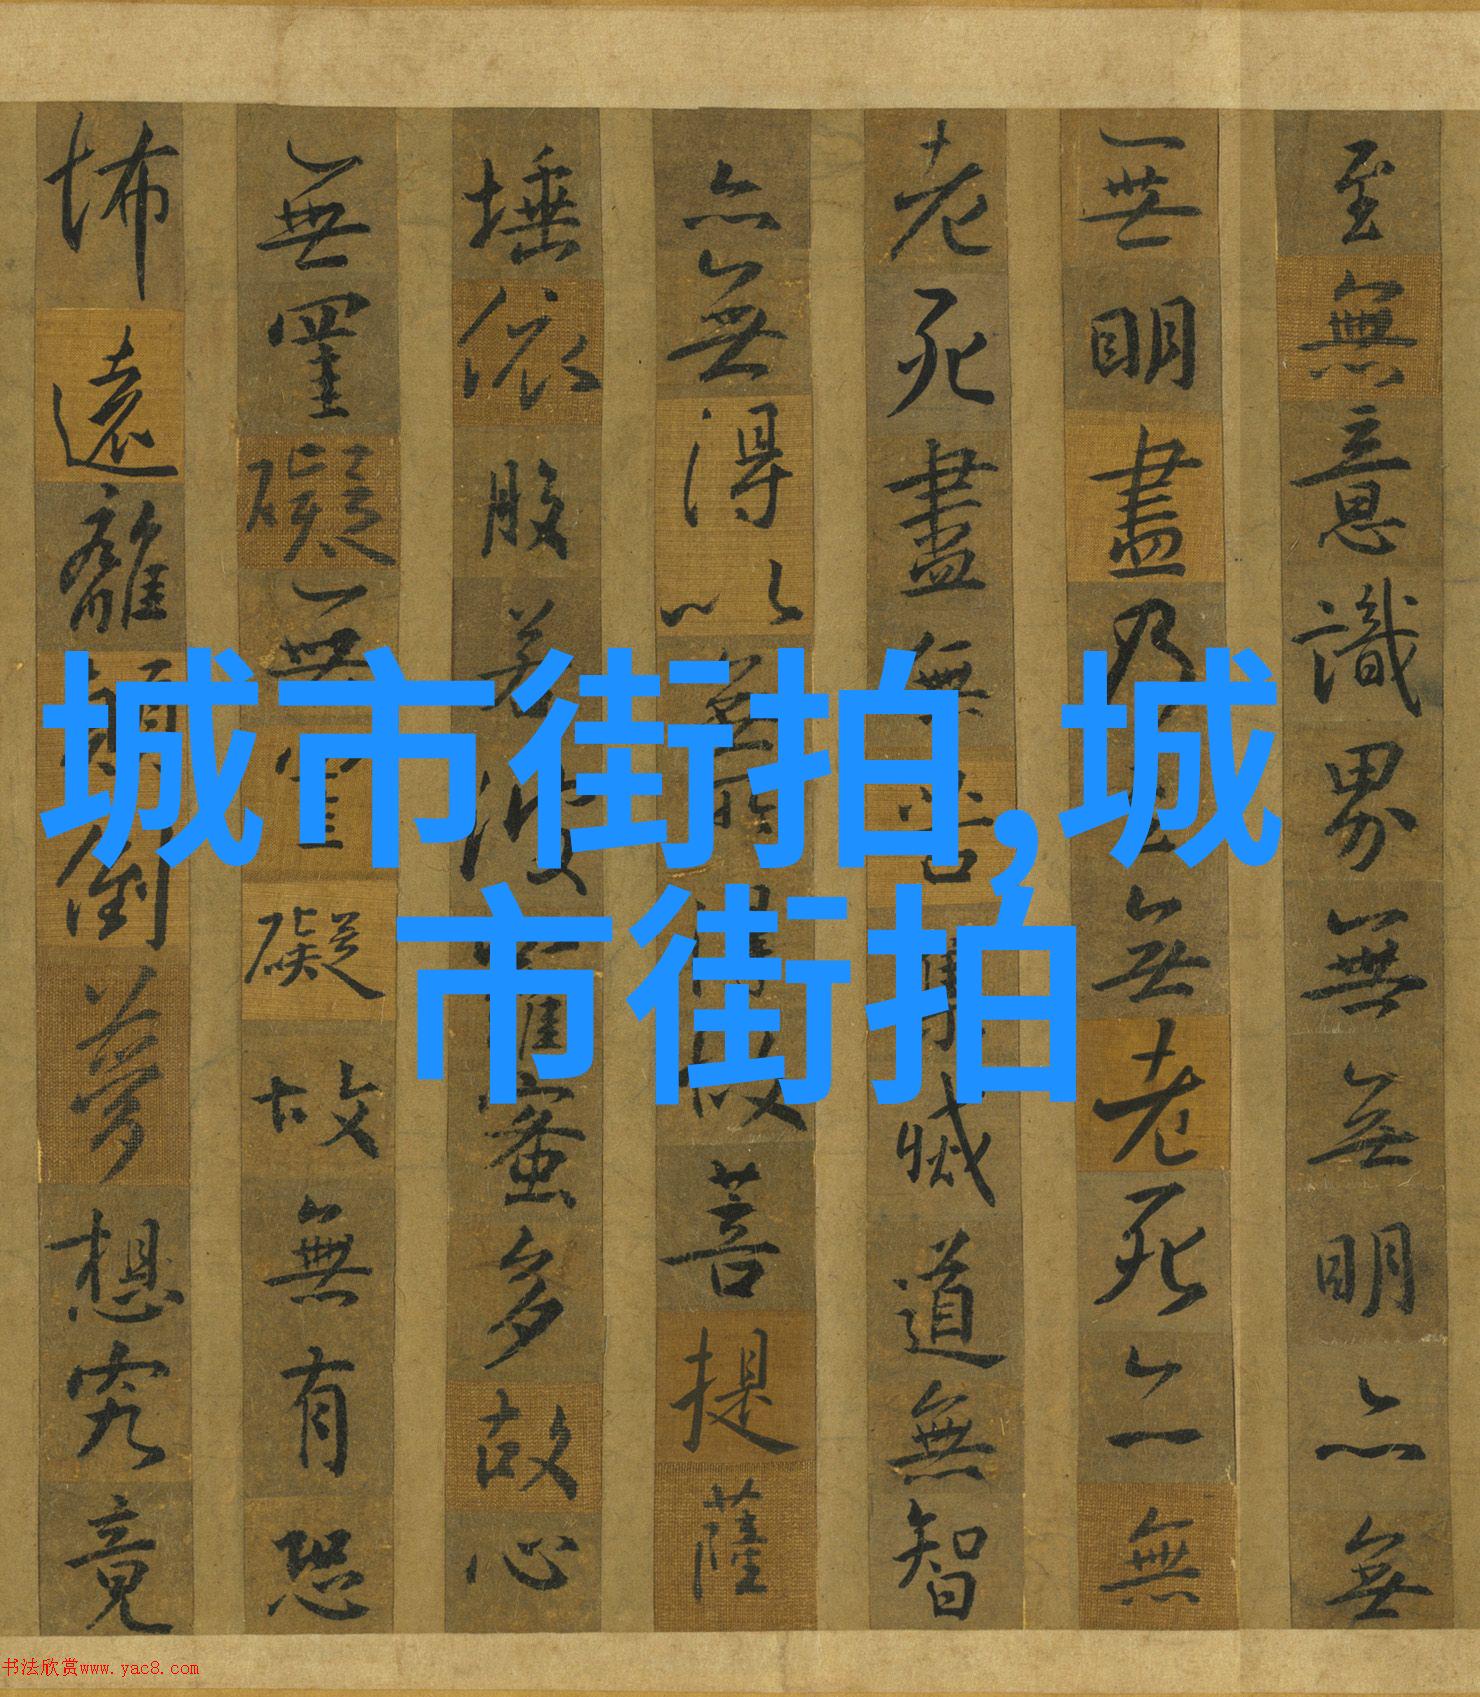 至無意識界無無明亦無
無明盡乃至無老死亦無
老死盡無苦集滅道無智
亦無得以無所得故菩提薩
埵依般若波羅蜜多故心
無罣礙無罣礙故無有恐
怖遠離顛倒夢想究竟
城市街拍,城
市街拍
书法欣赏www.yac8.com